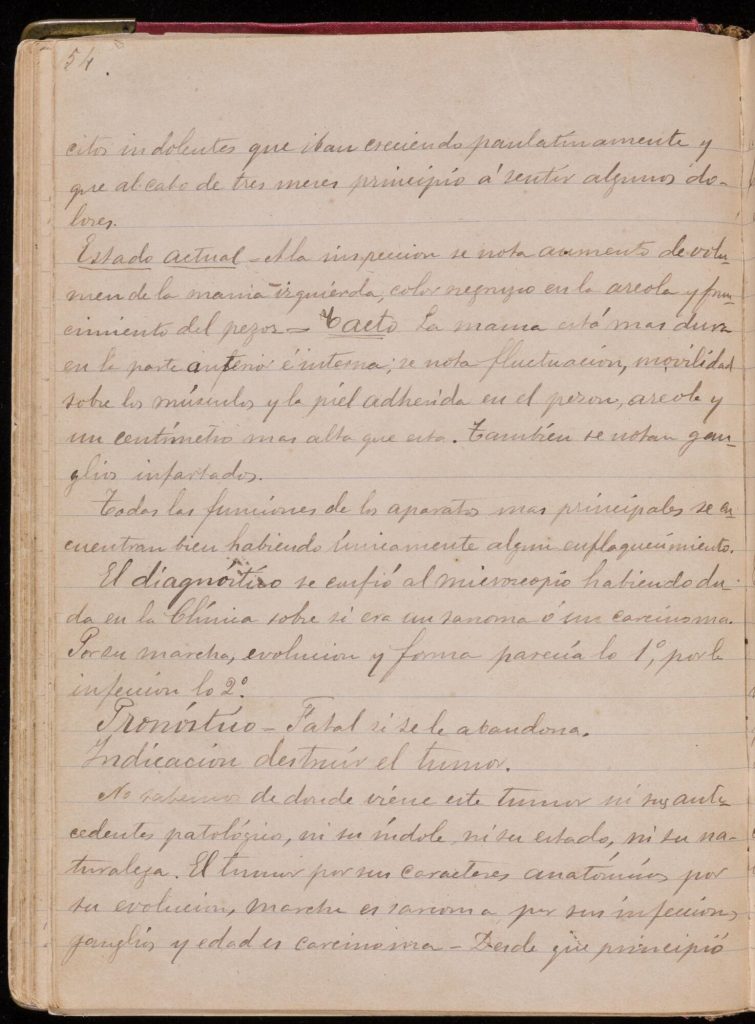 54.
citos indolentes que iban creciendo paulatinamente y
que al cabo de tres meses principio á sentir algunos do-
lores.
Estado actual - A la inspeccion se nota aumento de volu-
men de la mama izquierda, color negruzco en la areola y frun-
cimiento del pezon - Tacto La mama está mas dura
en la parte anterior é interna; se nota fluctuacion, movilidad
sobre los músculos y la piel adherida en el pezon, areola y
un centímetro mas alta que esta. Tambien se notan gan-
glios infartados.
Todas las funciones de los aparatos mas principales se en
cuentran bien habiendo únicamente algun enflaquecimiento.
El diagnóstico se confió al microscopio habiendo du-
da en la Clínica sobre si era un sarcoma ó un carcinoma.
Por su marcha, evolucion y forma parecía lo 1º, por la
infeccion lo 2º.
Pronóstico - Fatal si se le abandona.
Indicacion destruir el tumor.
No sabemos de donde viene este tumor ni sus ante
cedentes patológicos, ni su índole, ni su estado, ni su na-
turaleza. El tumor por sus caracteres anatómicos por
su evolucion, marcha es sarcoma por sus infecciones
ganglios y edad es carcinoma - Desde que principió